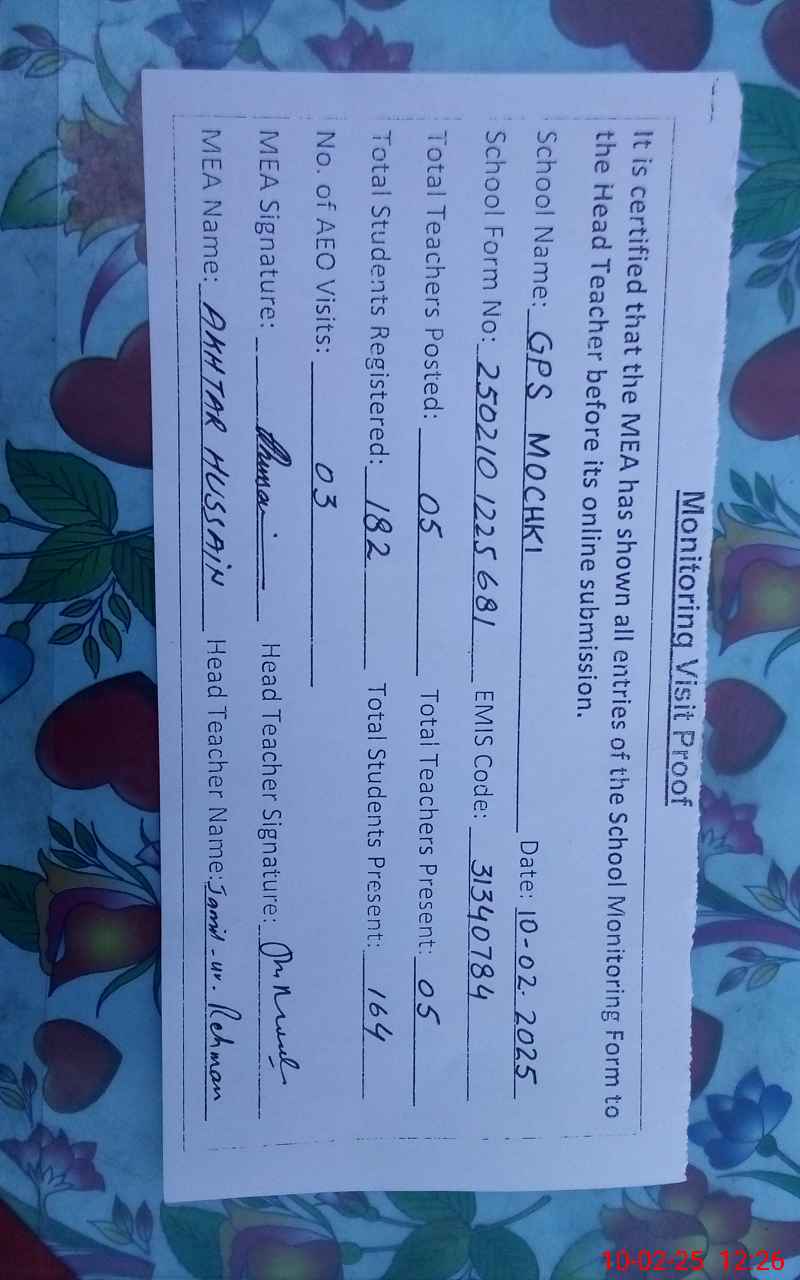 Monitoring Visit Proof
It is certified that the MEA has shown all entries of the School Monitoring Form to
the Head Teacher before its online submission.
School Name: GPS MOCHKI Date: 10-02-2025
School Form No: 250210 1225681 EMIS Code: 31340784
Total Teachers Posted: 05 Total Teachers Present: 05
Total Students Registered: 182 Total Students Present: 164
No. of AEO Visits: 03
MEA Signature: Head Teacher Signature:
MEA Name: AKHTAR HUSSAIN Head Teacher Name: Jamil-ur-Rehman
10-02-25 12:26